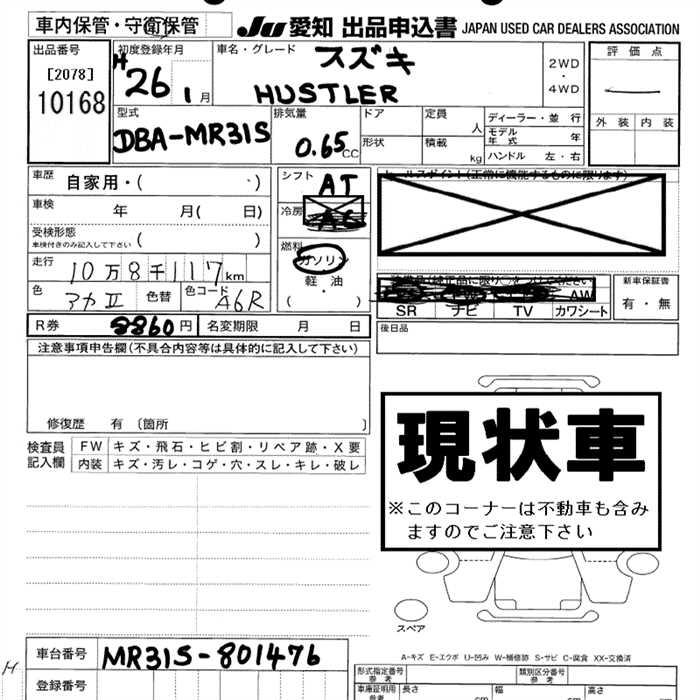 車内保管・守衛保管 JU 愛知 出品申込書 JAPAN USED CAR DEALERS ASSOCIATION
出品番号
[2078]
10168
初度登録年月
H26 1月
車名・グレード
スズキ
HUSTLER
2WD
・
4WD
評価点
外装 内装
型式
DBA-MR31S
排気量
0.65CC
ドア
形状
定員 人
積載 kg
ディーラー・並行
モデル年式 年
ハンドル 左・右
車歴 自家用・( )
車検 年 月( 日)
受検形態
車検付きのみ記入して下さい ( )
走行 10万8千117km
色 アカⅡ 色替 色コード A6R
シフト AT
冷房
燃料
ガソリン
・
軽油
・
( )
セールスポイント(正常に機能するものに限ります)
AW
SR ナビ TV カワシート
新車保証書
有・無
R券 8860円 名変期限 月 日
後日品
注意事項申告欄(不具合内容等は具体的に記入して下さい)
修復歴 有 〔箇所 〕
検査員記入欄
FW キズ・飛石・ヒビ割・リペア跡・X要
内装 キズ・汚レ・コゲ・穴・スレ・キレ・破レ
現状車
※このコーナーは不動車も含み
ますのでご注意下さい
スペア
A-キズ E-エクボ U-凹み W-補修跡 S-サビ C-腐食 XX-交換済
車台番号 MR31S-801476
H
登録番号
型式指定番号
参考
類別区分番号
参考
車庫証明用
参考
長さ cm
幅 cm
高さ cm